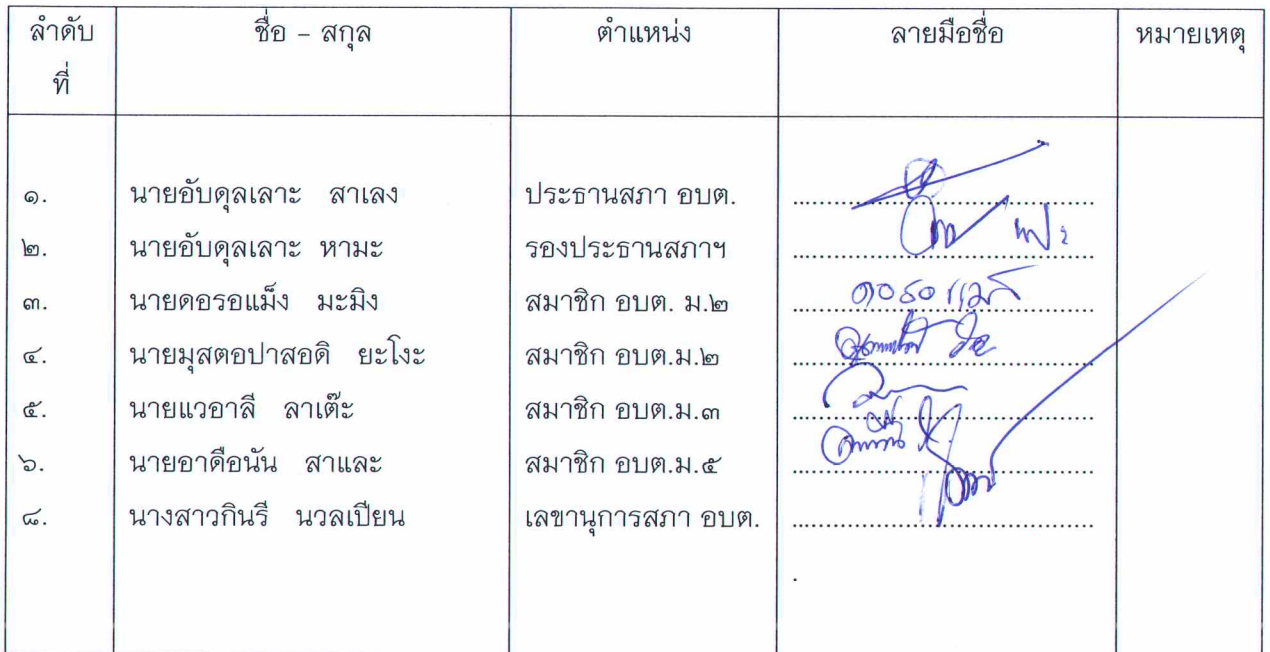 ลำดับที่ ชื่อ – สกุล ตำแหน่ง ลายมือชื่อ หมายเหตุ
๑. นายอับดุลเลาะ สาเลง ประธานสภา อบต.
๒. นายอับดุลเลาะ หามะ รองประธานสภาฯ
๓. นายดอรอแม็ง มะมิง สมาชิก อบต. ม.๒
๔. นายมุสตอปาสอดิ ยะโงะ สมาชิก อบต.ม.๒
๕. นายแวอาลี ลาเต๊ะ สมาชิก อบต.ม.๓
๖. นายอาดือนัน สาและ สมาชิก อบต.ม.๕
๘. นางสาวกินรี นวลเปียน เลขานุการสภา อบต.